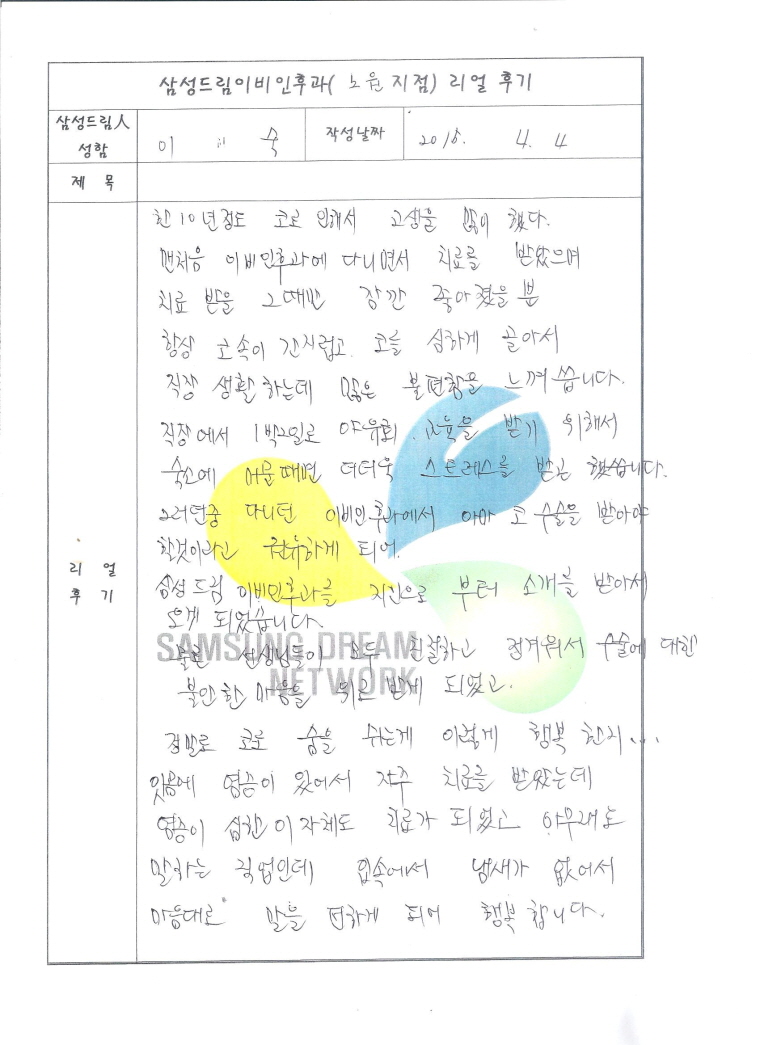 삼성드림이비인후과( 노원 지점) 리얼 후기
삼성드림人 성함
이 숙
작성날짜
2015. 4. 4
제 목
리 얼 후 기
한 10년정도 코로 인해서 고생을 많이 했다.
맨처음 이비인후과에 다니면서 치료를 받았으며
치료 받을 그때만 잠깐 좋아졌을 뿐
항상 코속이 간지럽고 코를 심하게 골아서
직장 생활 하는데 많은 불편함을 느껴씁니다.
직장에서 1박2일로 야유회. 교육을 받기 위해서
숙소에 머물때면 더더욱 스트레스를 받곤 했씁니다.
그러던중 다니던 이비인후과에서 아마 코 수술을 받아야
할것이라고 권유하게 되어.
삼성드림 이비인후과를 지인으로 부터 소개를 받아서
오게 되었씁니다.
물론 선생님들이 모두 친절하고 정겨워서 수술에 대한
불안한 마음을 위로 받게 되었고.
정말로 코로 숨을 쉬는게 이렇게 행복 한지...
잇몸에 염증이 있어서 자주 치료를 받았는데
염증이 심한 이 자체도 치료가 되었고 아무래도
말하는 직업인데 입속에서 냄새가 없어서
마음대로 말을 편하게 되어 행복 합니다.
SAMSUNG DREAM
NETWORK